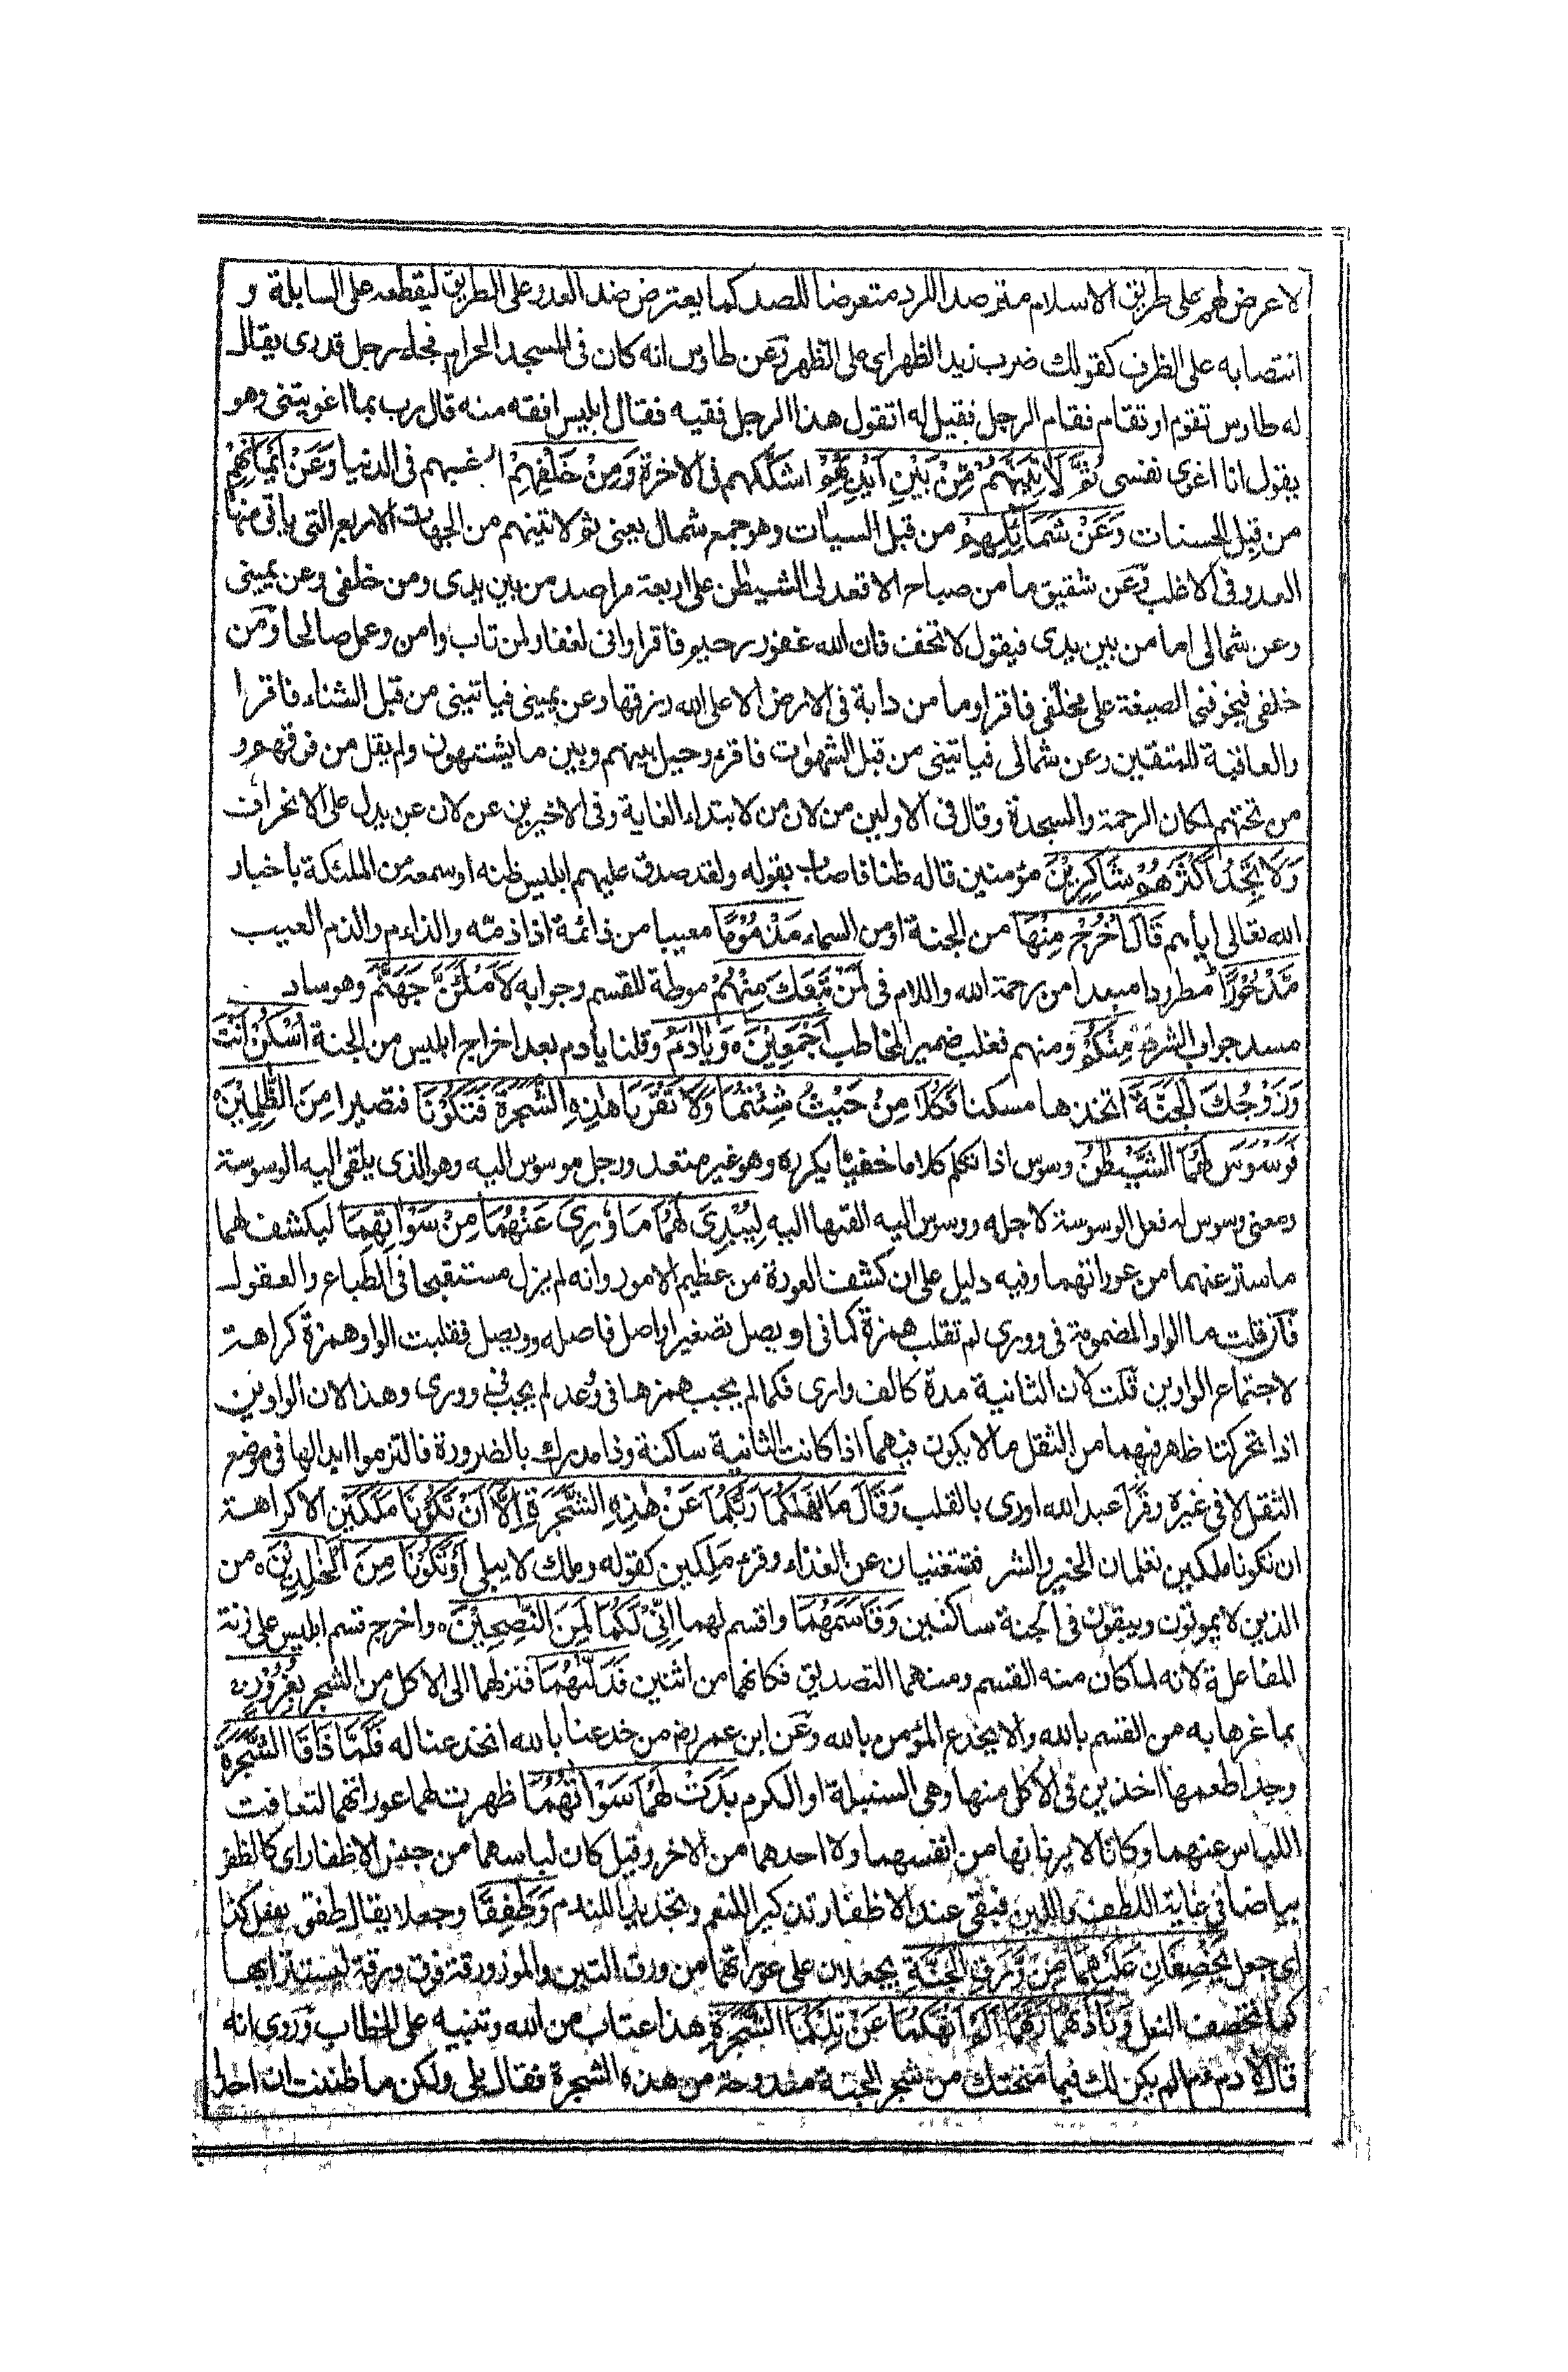 لاعرض لهم على طريق الاسلام مترصدا للرد متعرضا للصد كما يعترض ضد العدو على الطريق ليقطعه على السابلة و
انتصابه على الظرف كقولك ضرب زيد الظهر اى على الظهر وعن طاوس انه كان فى المسجد الحرام فجاء رجل قدرى يقال
له طاوس تقوم او تقام فقام الرجل فقيل له اتقول هذا الرجل فقيه فقال ابليس افقه منه قال رب بما اغويتنى وهو
يقول انا اغوى نفسى ثُمَّ لَاٰتِيَنَّهُمْ مِّنْ بَيْنِ اَيْدِيْهِمْ اشككهم فى الاخرة وَمِنْ خَلْفِهِمْ ارغبهم فى الدنيا وَعَنْ اَيْمَانِهِمْ
من قبل الحسنات وَعَنْ شَمَآئِلِهِمْ من قبل السيات وهو جمع شمال يعنى ثم لاتينهم من الجهات الاربع التى ياتى منها
العدو فى الاغلب وعن شقيق ما من صباح الا قعد لى الشيطن على اربعة مراصد من بين يدى ومن خلفى وعن يمينى
وعن شمالى اما من بين يدى فيقول لا تخف فان الله غفور رحيم فاقرا وانى لغفار لمن تاب وامن وعمل صالحا ومن
خلفى فيخوفنى الضيعة على مخلفى فاقرا وما من دابة فى الارض الا على الله رزقها وعن يمينى فياتينى من قبل الثناء فاقرا
والعاقبة للمتقين وعن شمالى فياتينى من قبل الشهوات فاقرء وحيل بينهم وبين ما يشتهون ولم يقل من فوقهم و
من تحتهم لمكان الرحمة والسجدة وقال فى الاولين من لان من لابتداء الغاية وفى الاخيرين عن لان عن يدل على الانحراف
وَلَا تَجِدُ اَكْثَرَهُمْ شَاكِرِيْنَ مؤمنين قاله ظنا فاصاب بقوله ولقد صدق عليهم ابليس ظنه او سمعه من الملئكة باخبار
الله تعالى اياهم قَالَ اخْرُجْ مِنْهَا من الجنة او من السماء مَذْءُوْمًا معيبا من ذائمة اذا ذمه والذاءم والذم العيب
مَّدْحُوْرًا مطرودا مبعدا من رحمة الله واللام فى لَمَنْ تَبِعَكَ مِنْهُمْ موطة للقسم وجوابه لَاَمْلَئَنَّ جَهَنَّمَ وهو ساد
مسد جواب الشرط مِنْكُمْ ومنهم فغلب ضمير المخاطب اَجْمَعِيْنَ ۝ وَيٰٓاٰدَمُ وقلنا يادم بعد اخراج ابليس من الجنة اسْكُنْ اَنْتَ
وَزَوْجُكَ الْجَنَّةَ اتخذها مسكنا فَكُلَا مِنْ حَيْثُ شِئْتُمَا وَلَا تَقْرَبَا هٰذِهِ الشَّجَرَةَ فَتَكُوْنَا فتصيرا مِنَ الظّٰلِمِيْنَ
فَوَسْوَسَ لَهُمَا الشَّيْطٰنُ وسوس اذا تكلم كلاما خفيا يكرره وهو غير متعد ورجل موسوس اليه وهو الذى يلقى اليه الوسوسة
ومعنى وسوس له فعل الوسوسة لاجله ووسوس اليه القها اليه لِيُبْدِىَ لَهُمَا مَا وٗرِىَ عَنْهُمَا مِنْ سَوْاٰتِهِمَا ليكشف لهما
ما ستر عنهما من عوراتهما وفيه دليل على ان كشف العورة من عظيم الامور وانه لم يزل مستقبحا فى الطباع والعقول
فان قلت ما الواو المضمومة فى وورى لم تقلب همزة كما فى او يصل تصغير اواصل فاصله وويصل فقلبت الواو همزة كراهة
لاجتماع الواوين قلت لان الثانية مدة كالف وارى فكما لم يجب همزها فى وعد لم يجب فى وورى وهذا لان الواوين
اذا تحركتا ظهر فيهما من الثقل ما لا يكون فيهما اذا كانت الثانية ساكنة وذا مدرك بالضرورة فالتزموا ابدالها فى موضع
الثقل لا فى غيره وقرأ عبد الله اورى بالقلب وَقَالَ مَا نَهٰكُمَا رَبُّكُمَا عَنْ هٰذِهِ الشَّجَرَةِ اِلَّآ اَنْ تَكُوْنَا مَلَكَيْنِ الا كراهة
ان تكونا ملكين تعلمان الخير والشر فتستغنيان عن الغذاء وقرء مَلِكين كقوله وملك لا يبلى اَوْ تَكُوْنَا مِنَ الْخٰلِدِيْنَ ۝ من
الذين لا يموتون ويبقون فى الجنة ساكنين وَقَاسَمَهُمَا واقسم لهما اِنِّىْ لَكُمَا لَمِنَ النّٰصِحِيْنَ ۝ واخرج قسم ابليس على زنة
المفاعلة لانه لما كان منه القسم ومنهما التصديق فكانهما من اثنين فَدَلّٰهُمَا فنزلهما الى الاكل من الشجر بِغُرُوْرٍ
بما غرهما به من القسم بالله ولا يخدع المؤمن بالله وعن ابن عمر رض من خدعنا بالله انخدعنا له فَلَمَّا ذَاقَا الشَّجَرَةَ
وجدا طعمها اخذين فى الاكل منها وهى السنبلة او الكرم بَدَتْ لَهُمَا سَوْاٰتُهُمَا ظهرت لهما عوراتهما لتهافت
اللباس عنهما وكانا لا يريانها من انفسهما ولا احدهما من الاخر وقيل كان لباسهما من جنس الاظفار اى كالظفر
بياضا فى غاية اللطف واللين فبقى عند الاظفار تذكيرا للنعم وتجديدا للندم وَطَفِقَا وجعلا يقال طفق يفعل كذا
اى جعل يَخْصِفَانِ عَلَيْهِمَا مِنْ وَّرَقِ الْجَنَّةِ يجعلان على عوراتهما من ورق التين والموز ورقة فوق ورقة ليستترا بها
كما تخصف النعل وَنَادٰهُمَا رَبُّهُمَآ اَلَمْ اَنْهَكُمَا عَنْ تِلْكُمَا الشَّجَرَةِ هذا عتاب من الله وتنبيه على الخطاب وروى انه
قال لادم الم يكن لك فيما منحتك من شجر الجنة مندوحة من هذه الشجرة فقال بلى ولكن ما ظننت ان احدا